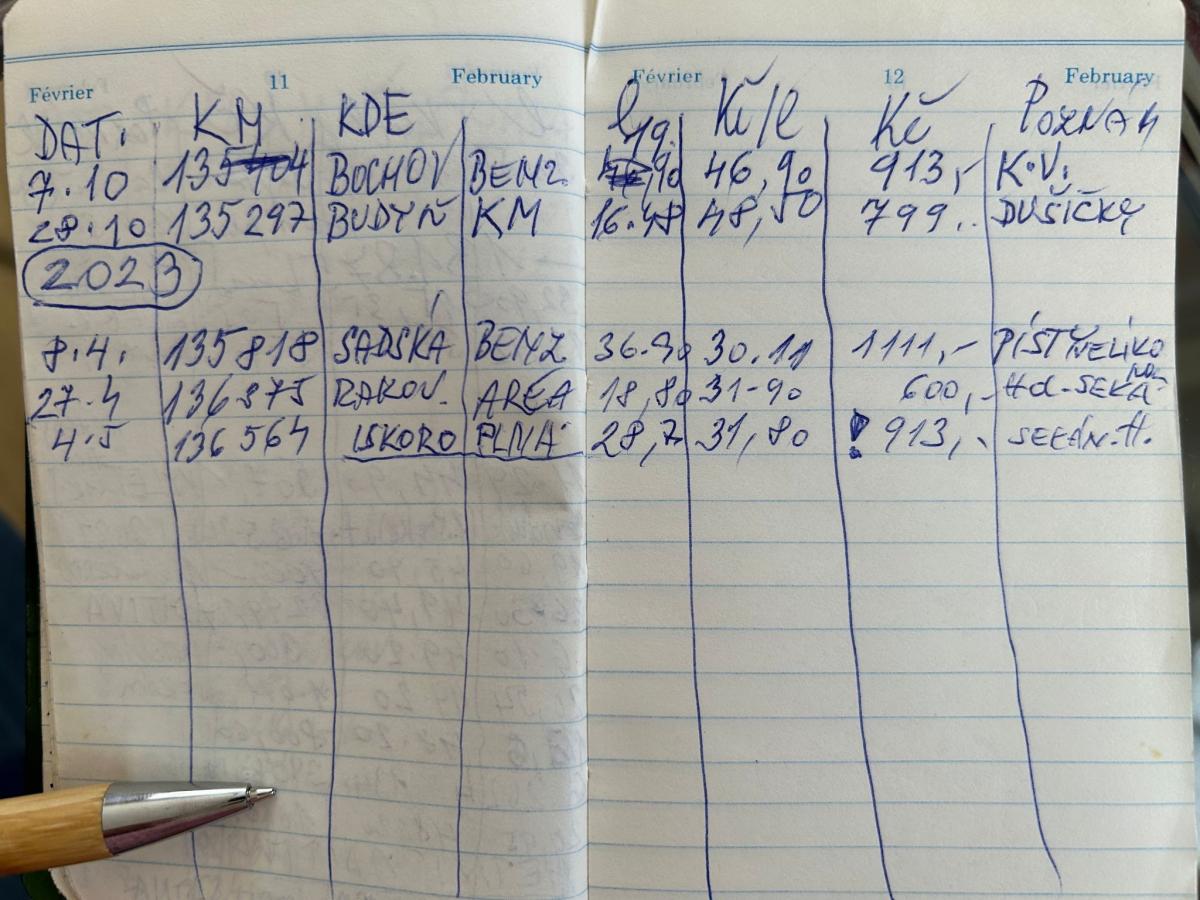 Février 11 February Février 12 February
DAT. KM KDE l Kč/l Kč POZNÁM
7.10 135 4 BOCHOV BENZ. 19,90 46,90 913,- K.V.
28.10 135297 BUDYŇ KM 16.48 48,50 799.. DUŠIČKY
2023
8.4. 135818 SADSKÁ BENZ 36.90 30.11 1111,-
27.4 136375 RAKOV. AREA 18,80 31-90 600,-
4.5 136564 (SKORO PLNÁ 28,7 31,80 ! 913,- SEKÁN.H.